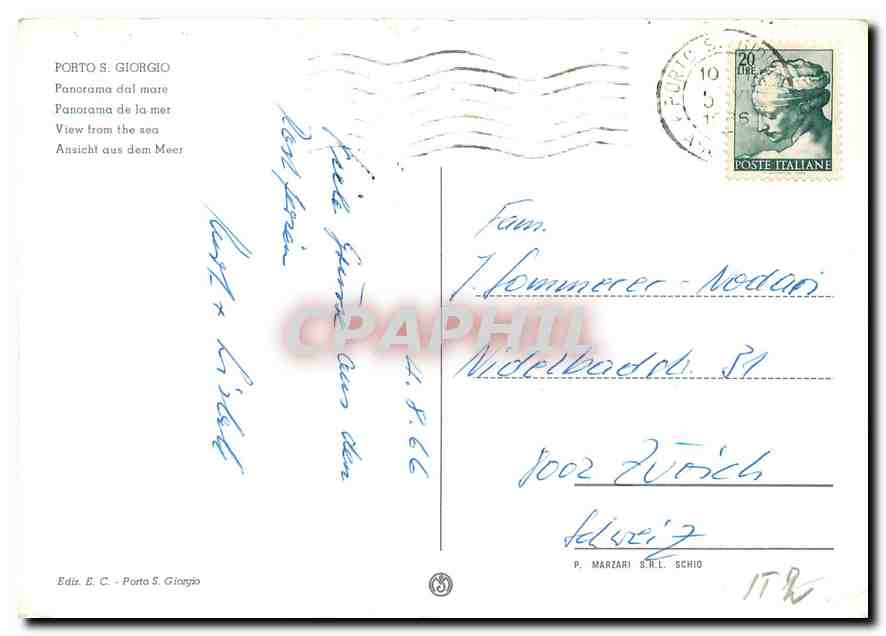 PORTO S. GIORGIO
Panorama dal mare
Panorama de la mer
View from the sea
Ansicht aus dem Meer
4.8.66
Viele Grüsse aus den
ferien
+
Ediz. E. C. - Porto S. Giorgio
PORTO S.
10
20
LIRE
POSTE ITALIANE
Fam.
J. Sommerer - Nodari
Nidelbadstr. 31
8002 Zürich
Schweiz
P. MARZARI S.R.L. SCHIO
IT
CPAPHIL